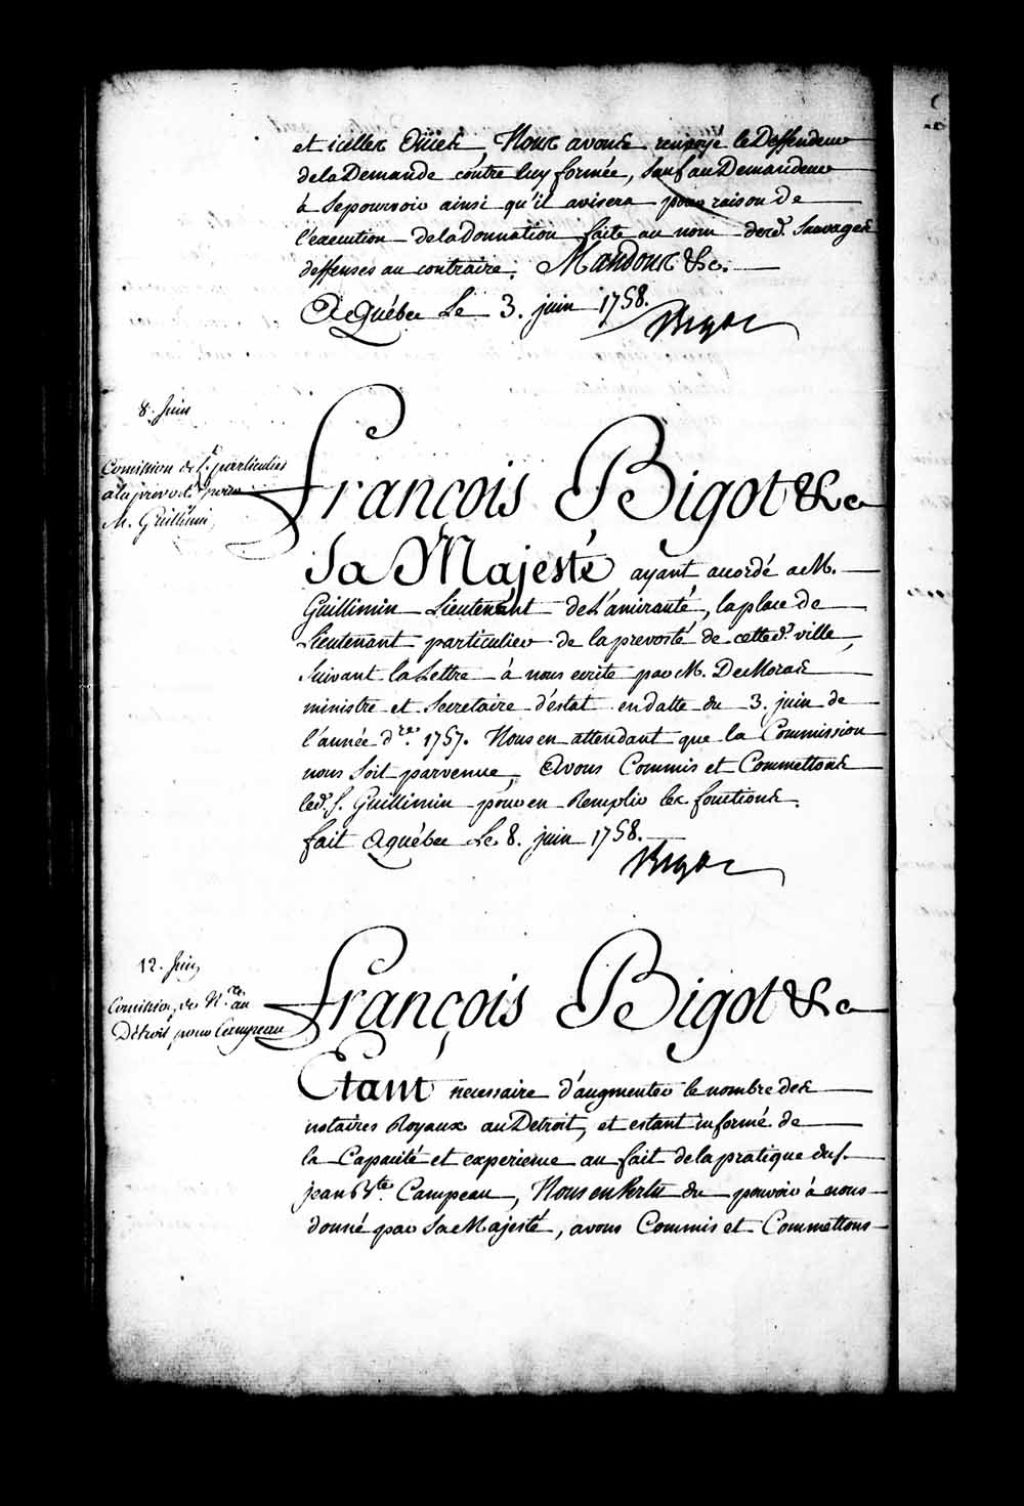 et icelles Oüiës, Nous avons renvoyé le Deffendeur
de la Demande contre luy formée, sauf au Demandeur
à se pourvoir ainsi qu'il avisera pour raison de
l'execution de la Donnation faite au nom desd. Sauvages
deffenses au contraire. Mandons &c.
A Québec Le 3. juin 1758.
Bigot
8. Juin
Comission de Lt. particulier
a la prevoté pour
M. Guillimin,
François Bigot &ca
Sa Majesté ayant accordé a M.
Guillimin Lieutenant de L'amirauté, la place de
Lieutenant particulier de la prevosté de cetted. ville,
suivant la Lettre à nous ecrite par M. De Moras
ministre et Secretaire d'état en datte du 3. juin de
l'année dre. 1757. Nous en attendant que la Commission
nous soit parvenue, Avons Commis et Commettons
led. s. Guillimin pour en Remplir les fonctions.
fait A québec Le 8. juin 1758.
Bigot
12. Juin
Comission de Nre. au
Détroit pour Campeau
François Bigot &ca
Etant necessaire d'augmenter le nombre des
notaires Royaux au Detroit, et estant informé de
la Capacité et experience au fait de la pratique du s.
jean Bte. Campeau, Nous en Vertu du pouvoir à nous
donné par Sa Majesté, avons Commis et Commettons